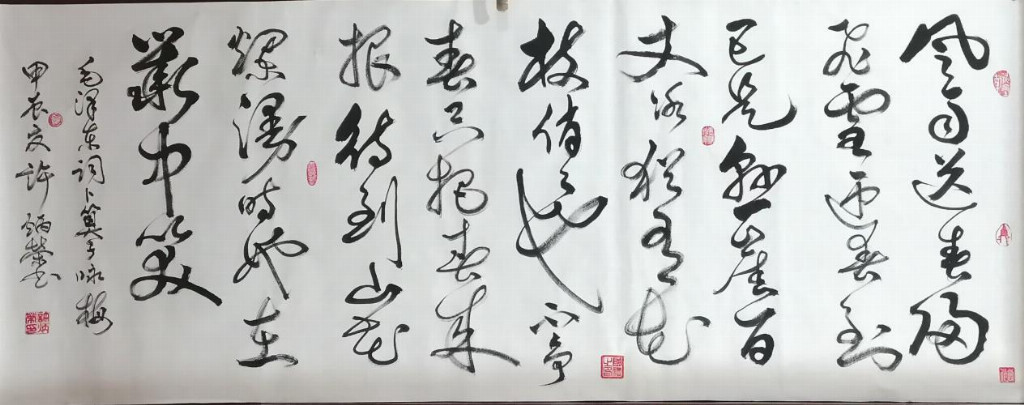 风雨送春归
飞雪迎春到
已是悬崖百
丈冰犹有花
枝俏俏也不争
春只把春来
报待到山花
烂漫时她在
丛中笑
毛泽东词卜算子咏梅
甲辰夏许炳荣书